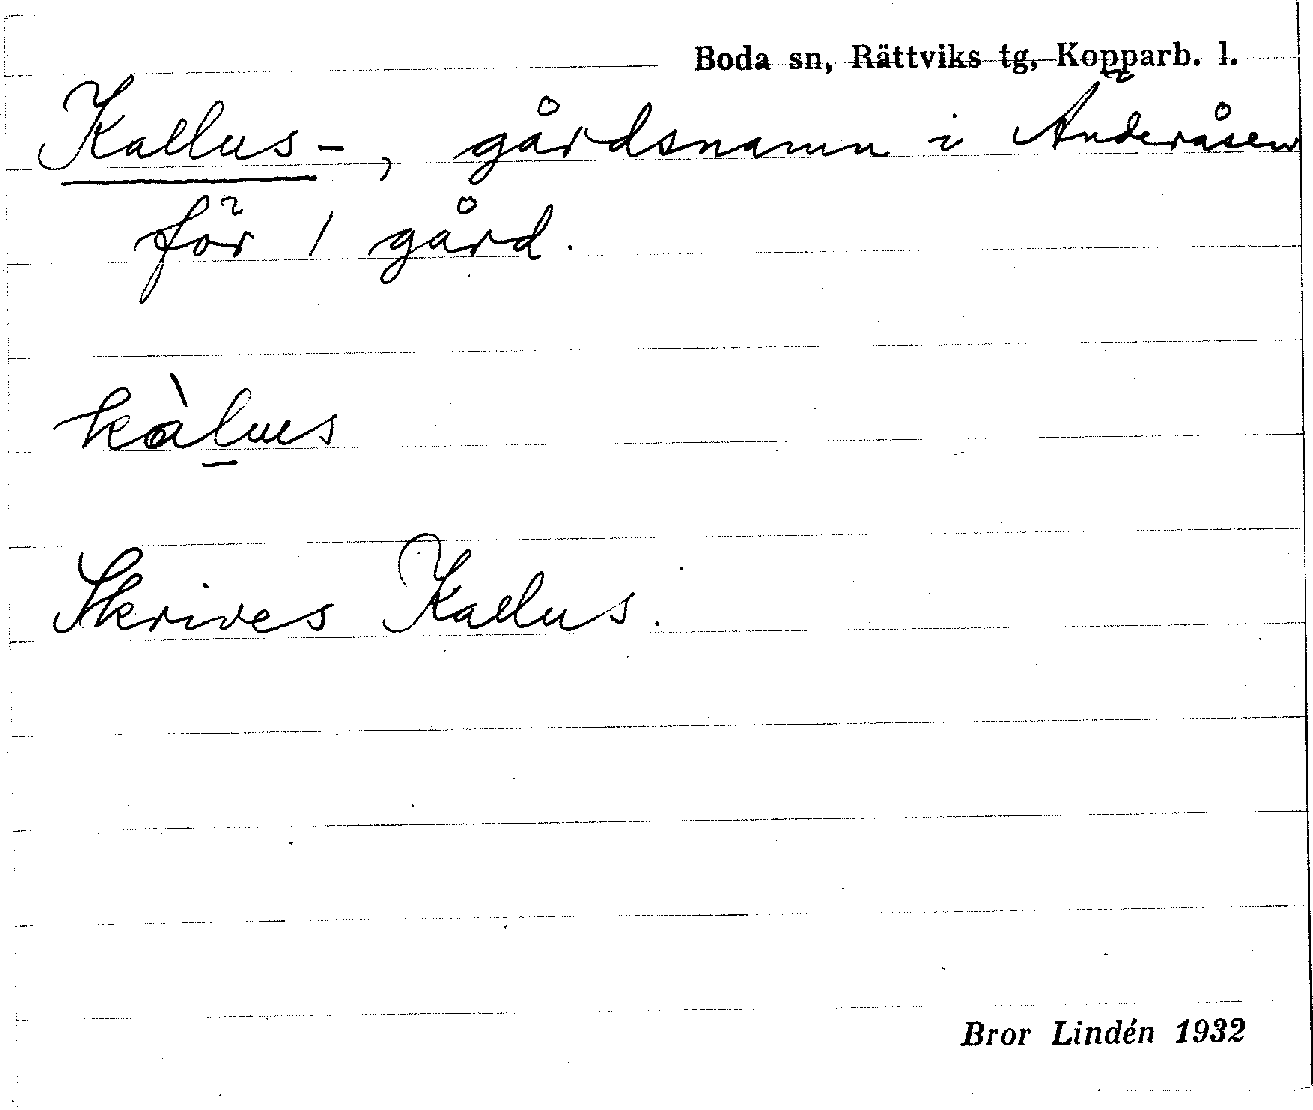 Boda sn, Rättviks tg, Kopparb. l.
Kallus-, gårdsnamn i Änderåsen
för 1 gård.
kàl̲us
Skrives Kallus.
Bror Lindén 1932